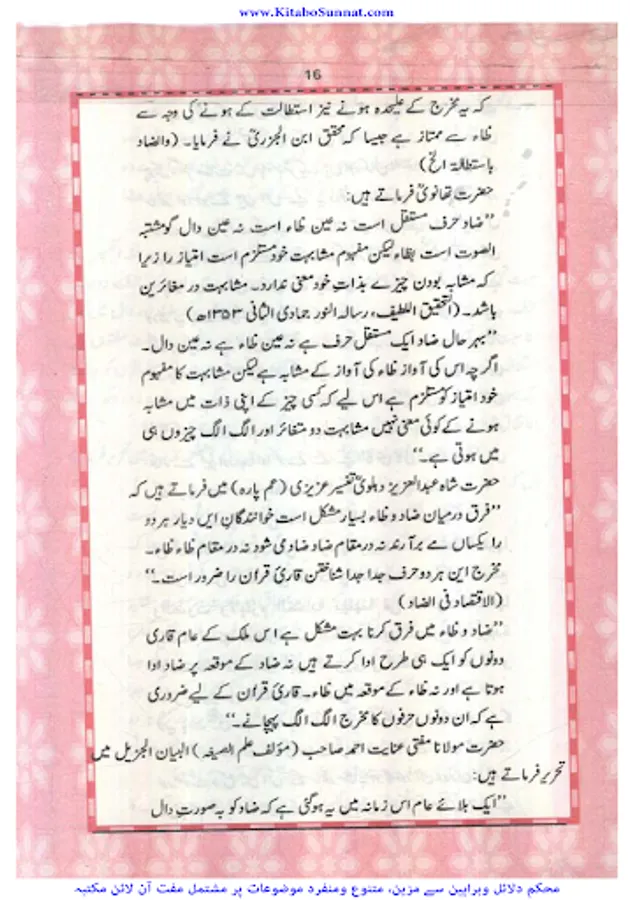 www.KitaboSunnat.com
16
کہ یہ مخرج کے علیحدہ ہونے نیز استطالت کے ہونے کی وجہ سے
ظاء سے ممتاز ہے جیسا کہ محقق ابن الجزریؒ نے فرمایا۔ (والضاد
باستطالۃ الخ)
حضرت تھانویؒ فرماتے ہیں:
’’ضاد حرف مستقل است نہ عین ظاء است نہ عین دال گو مشتبہ
الصوت است بظاء لیکن مفہوم مشابہت خود مستلزم است امتیاز را زیرا
کہ مشابہ بودن چیزے بذات خود معنی ندارد۔ مشابہت در مغائرین
باشد۔ (التحقیق اللطیف، رسالہ النور جمادی الثانی ۱۳۵۳ھ)
’’بہر حال ضاد ایک مستقل حرف ہے نہ عین ظاء ہے نہ عین دال۔
اگرچہ اس کی آواز ظاء کی آواز کے مشابہ ہے لیکن مشابہت کا مفہوم
خود امتیاز کو مستلزم ہے اس لیے کہ کسی چیز کے اپنی ذات میں مشابہ
ہونے کے کوئی معنی نہیں مشابہت دو متغائر اور الگ الگ چیزوں ہی
میں ہوتی ہے۔‘‘
حضرت شاہ عبدالعزیز دہلویؒ تفسیر عزیزی (عم پارہ) میں فرماتے ہیں کہ
’’فرق درمیان ضاد و ظاء بسیار مشکل است خوانندگان ایں دیار ہر دو
را یکساں مے برآرند نہ در مقام ضاد ضاد می شود نہ در مقام ظاء ظاء۔
مخرج این ہر دو حرف جدا جدا شناختن قاریٔ قرآن را ضرور است۔‘‘
(الاقتصاد فی الضاد)
’’ضاد و ظاء میں فرق کرنا بہت مشکل ہے اس ملک کے عام قاری
دونوں کو ایک ہی طرح ادا کرتے ہیں نہ ضاد کے موقعہ پر ضاد ادا
ہوتا ہے اور نہ ظاء کے موقعہ میں ظاء۔ قاریٔ قرآن کے لیے ضروری
ہے کہ ان دونوں حرفوں کا مخرج الگ الگ پہچانے۔‘‘
حضرت مولانا مفتی عنایت احمد صاحب (مؤلف علم الصیغہ) البیان الجزیل میں
تحریر فرماتے ہیں:
’’ایک بلائے عام اس زمانہ میں یہ ہوگئی ہے کہ ضاد کو بہ صورت دال
محکم دلائل وبراہین سے مزین، متنوع ومنفرد موضوعات پر مشتمل مفت آن لائن مکتبہ